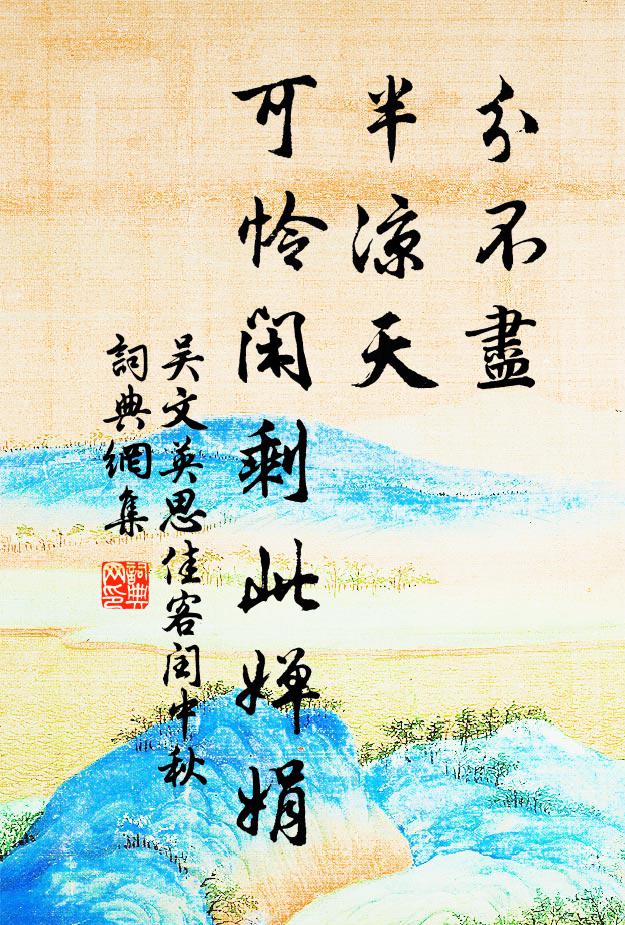 分不盡
半涼天
可怜閑剩此嬋娟
吴文英思佳客閏中秋
詞典網集
詞典网印